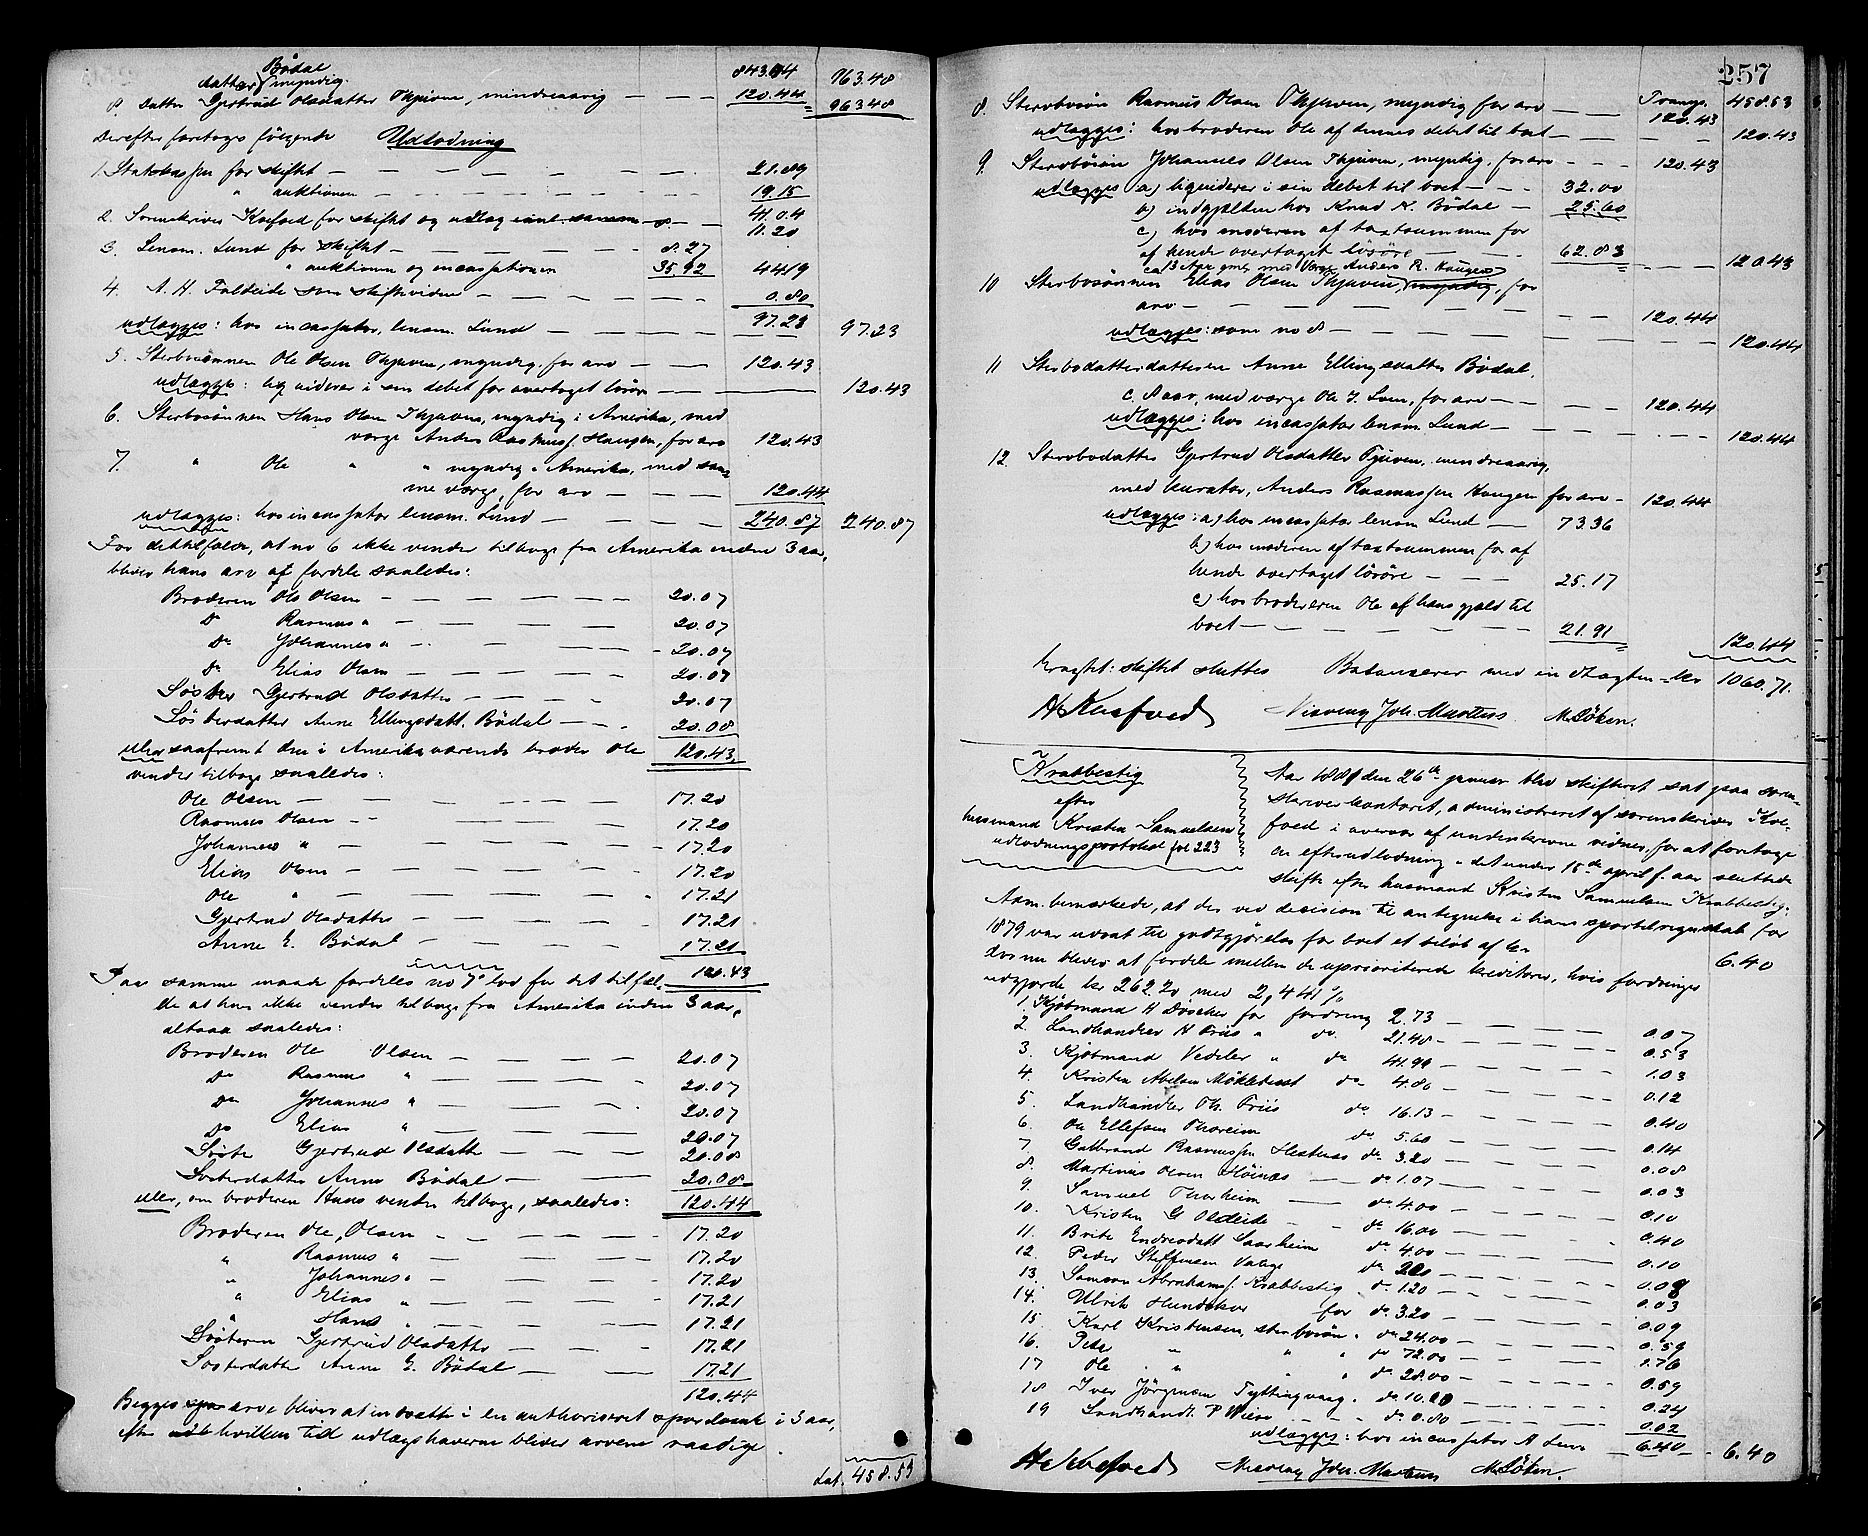 Bødal
datter myndig. 843.04 963.48
8. datter Gjertrud Olsdatter Thjuven, mindreaarig — — — 120.44 963.48
Derefter foretoges følgende Udlodning
1. Statskassen for skiftet — — — 21.89
" auktionen — — — 19.15
41.04
2. Sorenskriver Koefoed for skiftet og udlæg — 11.20
3. Lensm. Lund for skiftet — — — 8.27
" auktionen og incassationen 35.92 44.19
4. A. H. Faleide som skiftevidne — — — 0.80
udlægges: hos incassator, lensm. Lund — — — 97.23 97.23
5. Sterbosønnen Ole Olsen Thjuven, myndig, for arv — — 120.43
udlægges: liquiderer i sin debet for overtaget løsøre — — 120.43
6. Sterbosønnen Hans Olsen Thjuven, myndig i Amerika, med
værge Anders Rasmuss. Haugen, for arv 120.43
7. " Ole " " myndig i Amerika, med sam-
me værge, for arv — — — 120.44
udlægges: hos incassator lensm. Lund — — — 240.87 240.87
For det tilfælde, at no 6 ikke vender tilbage fra Amerika inden 3 aar,
bliver hans arv at fordele saaledes:
Broderen Ole Olsen — — — 20.07
do Rasmus " — — — 20.07
do Johannes " — — — 20.07
do Elias Olsen — — — 20.07
Søster Gjertrud Olsdatter — — — 20.07
Søsterdatter Anne Ellingsdatt. Bødal — — 20.08
eller saafremt den i Amerika værende broder Ole 120.43
vender tilbage saaledes:
Ole Olsen — — — 17.20
Rasmus Olsen — — — 17.20
Johannes " — — — 17.20
Elias Olsen — — — 17.20
Ole " — — — 17.21
Gjertrud Olsdatter — — — 17.21
Anne E. Bødal — — — 17.21
120.43
Paa samme maade fordeles no 7s lod for det tilfæl-
de at han ikke vender tilbage fra Amerika inden 3 aar,
altsaa saaledes:
Broderen Ole Olsen — — — 20.07
do Rasmus " — — — 20.07
do Johannes " — — — 20.07
do Elias " — — — 20.07
Søster Gjertrud Olsdatter — — — 20.08
Søsterdatter Anne Bødal — — — 20.08
eller, om broderen Hans vender tilbage, saaledes: 120.44
Broderen Ole Olsen — — — 17.20
" Rasmus " — — — 17.20
" Johannes " — — — 17.20
" Elias " — — — 17.21
" Hans " — — — 17.21
Søsteren Gjertrud Olsdatter — — — 17.21
Søsterdatter Anne E. Bødal — — — 17.21
120.44
Begges arve bliver at indsætte i en authoriseret sparebank i 3 aar,
efter hvilken tid udlægshaverne bliver arvene raadige.
Lat. 458.53
257
Transp. 458.53
8. Sterbosøn Rasmus Olsen Thjuven, myndig for arv — — 120.43
udlægges: hos broderen Ole af dennes debet til boet — — — 120.43
9. Sterbosøn Johannes Olsen Thjuven, myndig, for arv — — — 120.43
udlægges a) liquiderer i sin debet til boet — — — 32.00
b) indgjælden hos Knud K. Bødal — 25.60
c) hos moderen af taxtsummen for
af hende overtaget løsøre — — — 62.83 — — — 120.43
med Værge Anders R. Haugen
10 Sterbosønnen Elias Olsen Thjuven, myndig, for
arv — — — 120.44
udlægges: som no 8 — — — 120.44
11 Sterbodatterdatteren Anne Ellingsdatter Bødal,
c. 8 aar, med værge Ole J. Loen, for arv — — — 120.44
udlægges: hos incassator lensm. Lund — — — 120.44
12. Sterbodatter Gjertrud Olsdatter Tjuven, mindreaarig,
med kurator, Anders Rasmussen Haugen for arv — 120.44
udlægges: a) hos incassator lensm Lund — 73.36
b) hos moderen af taxtsummen for af
hende overtaget løsøre — — — 25.17
c) hos broderen Ole af hans gjæld til
boet — — — 21.91 120.44
skiftet sluttes Balancerer med indtægten — kr 1060.71.
H Koefoed Nicolay Joh. Martens M Loken.
Krabbestig
efter
husmand Kristen Samuelsen
udlodningsprotokol fol 223
Aar 1881 den 26de januar blev skifteret sat paa soren-
skriverkontoret, administreret af sorenskriver Koe-
foed i overvær af underskrevne vidner, for at foretage
en efterudlodning i det under 15de april f. aar sluttede
skifte efter husmand Kristen Samuelsen Krabbestig.
Adm. bemærkede, at der ved decision til antegnelse i hans sportelregnskab for
1879 var udsat til godtgjørelse for boet et beløb af kr 6.40
der nu bliver at fordele mellem de uprioriterede kreditorer, hvis fordringer
udgjorde kr 262.20 med 2,441 %
1. Kjøbmand H Døscher for fordring 2.73 — — — 0.07
2. Landhandler H Friis " do 21.48 — — — 0.53
3. Kjøbmand Vedeler " do 41.99 — — — 1.03
4. Kristen Abelsen Møklebust do 4.80 — — — 0.12
5. Landhandler Oh. Friis do 16.13 — — — 0.40
6. Ole Ellefsen Thoreim do 5.60 — — — 0.14
7. Gulbrand Rasmussen Hestenes do 3.20 — — — 0.08
8. Martinus Olsen Høines — — do 1.07 — — — 0.03
9. Samuel Thorheim — — do 4.00 — — — 0.10
10. Kristen G Oldeide — — do 16.00 — — — 0.40
11. Brite Endresdatt Saarheim do 4.00 — — — 0.10
12. Peder Steffensen do — — — 0.08
13. Samson Abrahams. Krabbestig do 1.20 — — — 0.03
14. Ulrik Hundskar for do 3.20 — — — 0.09
15. Karl Kristensen, sterbosøn " do 24.00 — — — 0.59
16. Peder " " " do 72.00 — — — 1.76
17 Ole " " " do 28.00 — — — 0.69
18. Iver Jørgensen Tyttingvaag. do 10.00 — — — 0.24
19 Landhandl. P Wiese — — do 0.80 — — — 0.02
udlægges: hos incassator A Lem — 6.40 — 6.40
H Koefoed Nicolay Joh. Martens M Loken.